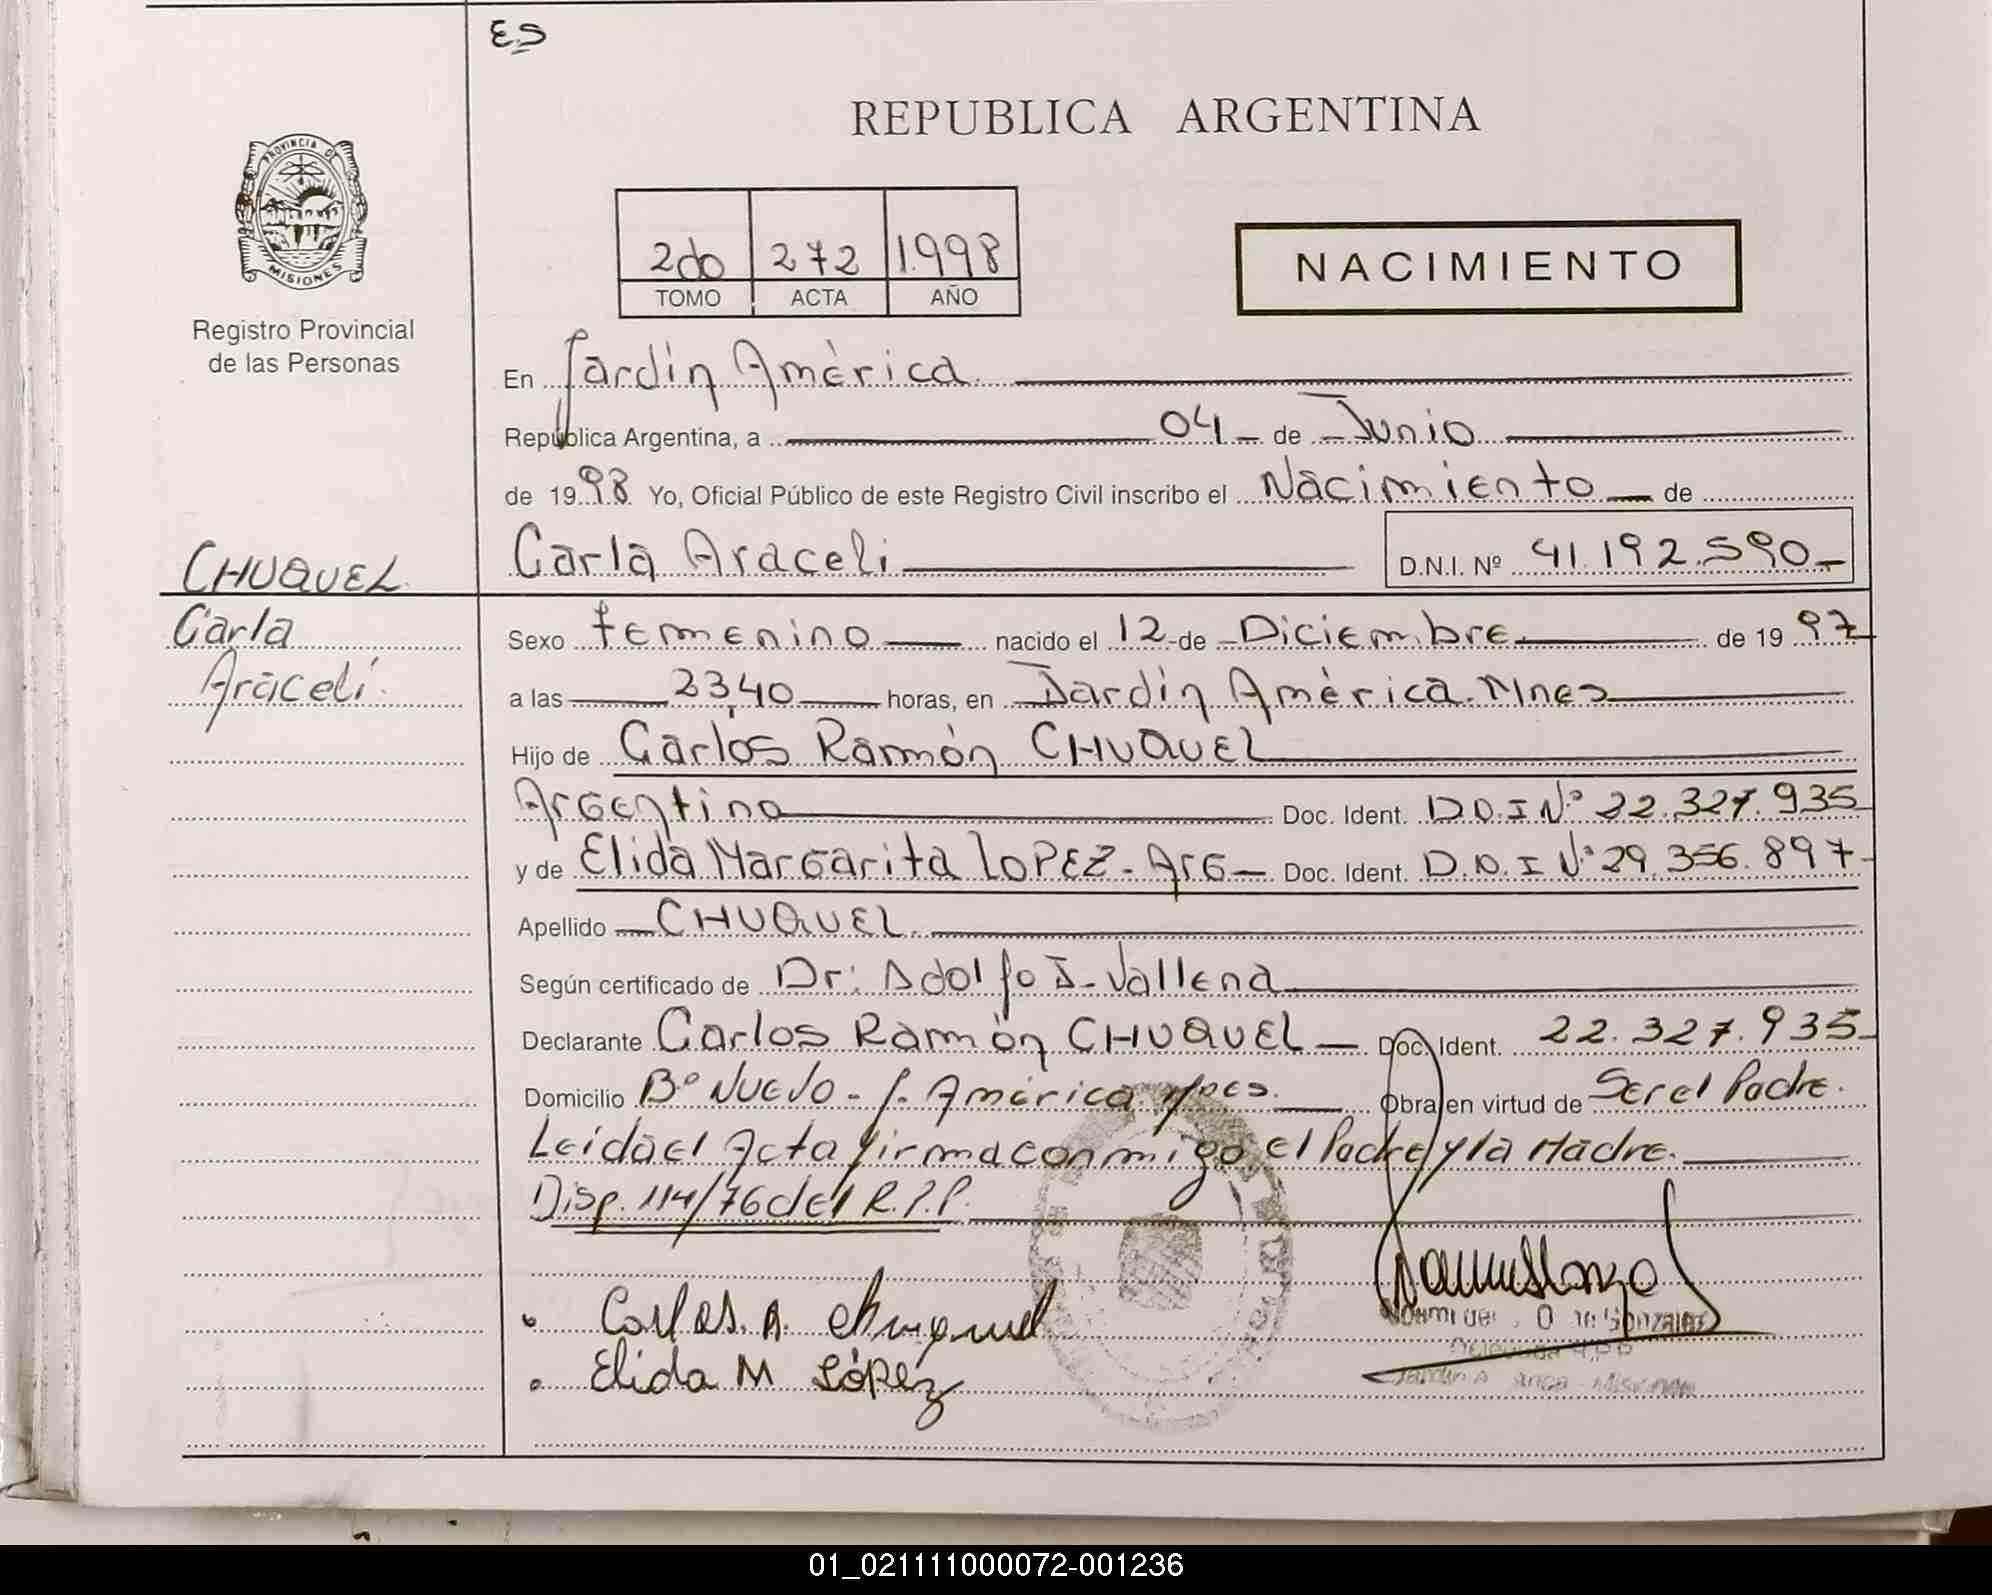 ES
REPUBLICA ARGENTINA
PROVINCIA DE
MISIONES
Registro Provincial
de las Personas
2do 272 1.998
TOMO ACTA AÑO
NACIMIENTO
En Jardín América
República Argentina, a 04 de Junio
de 1998 Yo, Oficial Público de este Registro Civil inscribo el Nacimiento de
Carla Araceli D.N.I. Nº 41.192.590
CHUQUEL
Carla
Araceli.
Sexo femenino nacido el 12 de Diciembre de 1997
a las 23,40 horas, en Jardín América. Mnes
Hijo de Carlos Ramón CHUQUEL
Argentino Doc. Ident. D.N.I Nº 22.327.935
y de Elida Margarita LOPEZ - Arg Doc. Ident. D.N.I Nº 29.356.897
Apellido CHUQUEL.
Según certificado de Dr: Adolfo J. Vallena
Declarante Carlos Ramón CHUQUEL Doc. Ident. 22.327.935
Domicilio Bº Nuevo - J. América Mnes. Obra en virtud de Ser el Padre.
Leida el Acta firma conmigo el Padre y la Madre.
Disp. 114/76 del R.P.P.
Elida M López
01_021111000072-001236